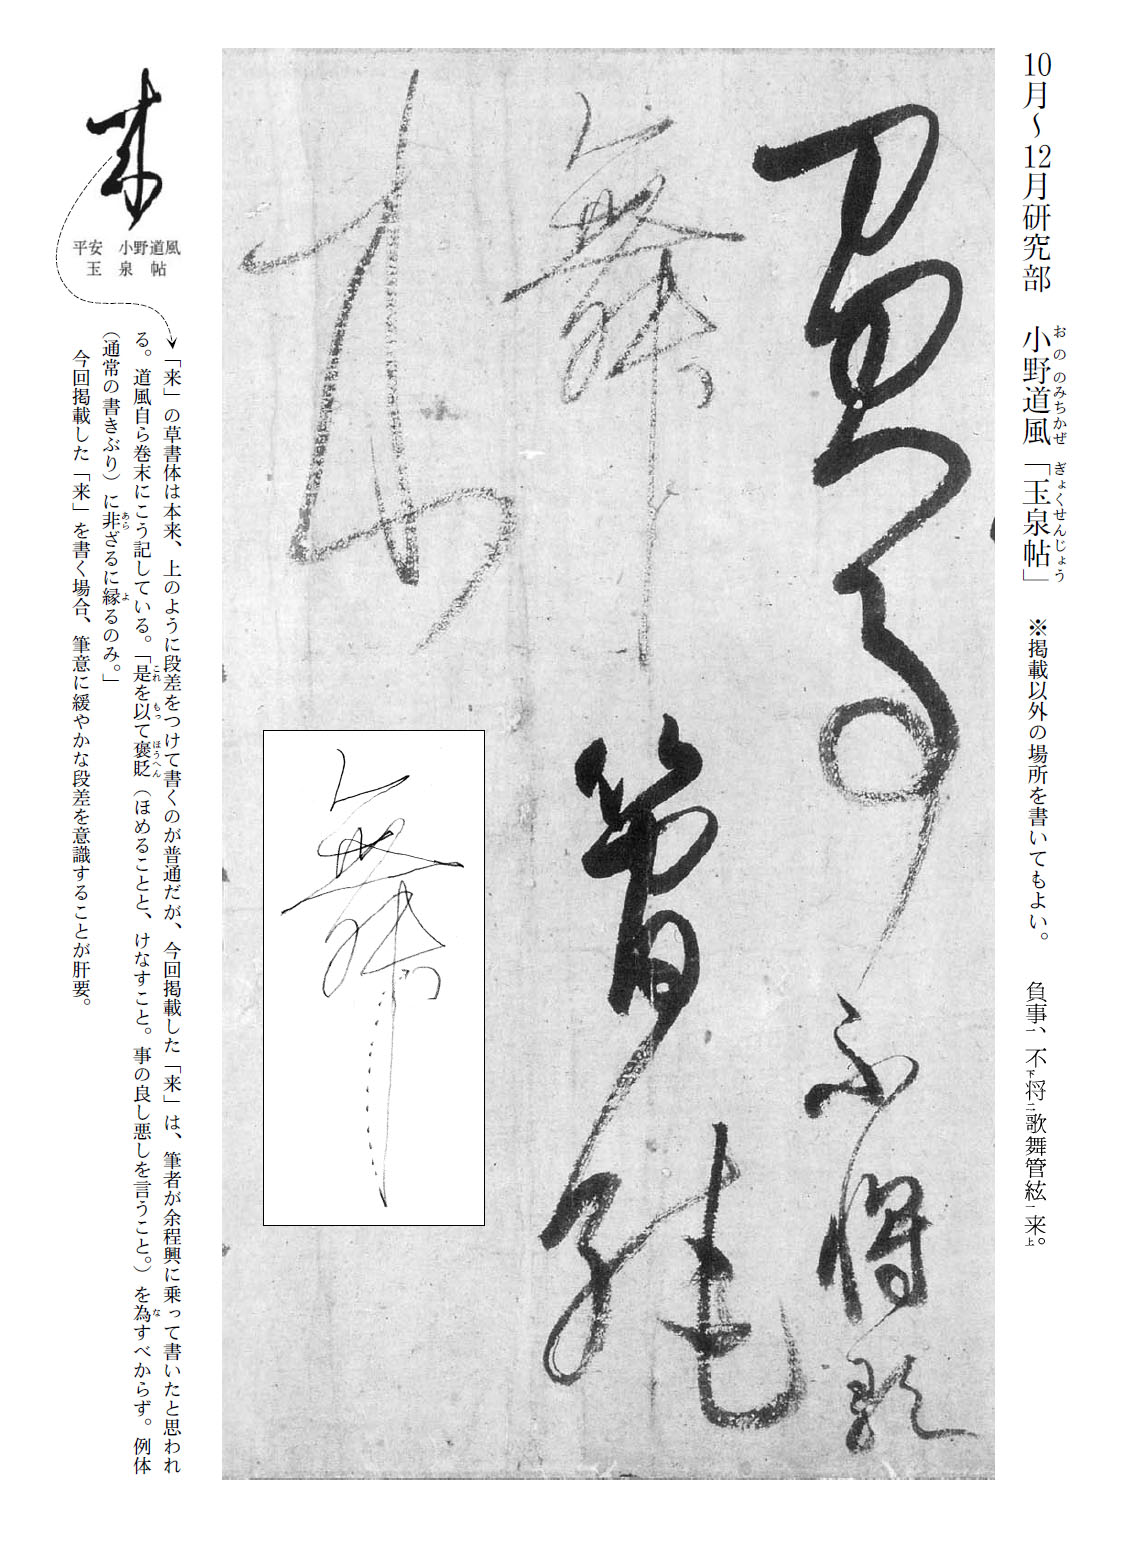 10月〜12月研究部　小野道風「玉泉帖」　※掲載以外の場所を書いてもよい。　負事一、不下将二歌舞管絃一来上。
おののみちかぜ　ぎょくせんじょう
負事不将歌
舞管絃
来
舞
来
平安　小野道風
玉　泉　帖
「来」の草書体は本来、上のように段差をつけて書くのが普通だが、今回掲載した「来」は、筆者が余程興に乗って書いたと思われ
る。道風自ら巻末にこう記している。「是これを以もって褒貶ほうへん（ほめることと、けなすこと。事の良し悪しを言うこと。）を為なすべからず。例体
（通常の書きぶり）に非あらざるに縁よるのみ。」
今回掲載した「来」を書く場合、筆意に緩やかな段差を意識することが肝要。